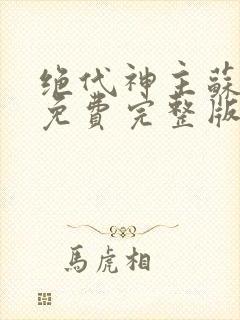 绝代神主蘇
免費完整版
馬虎相